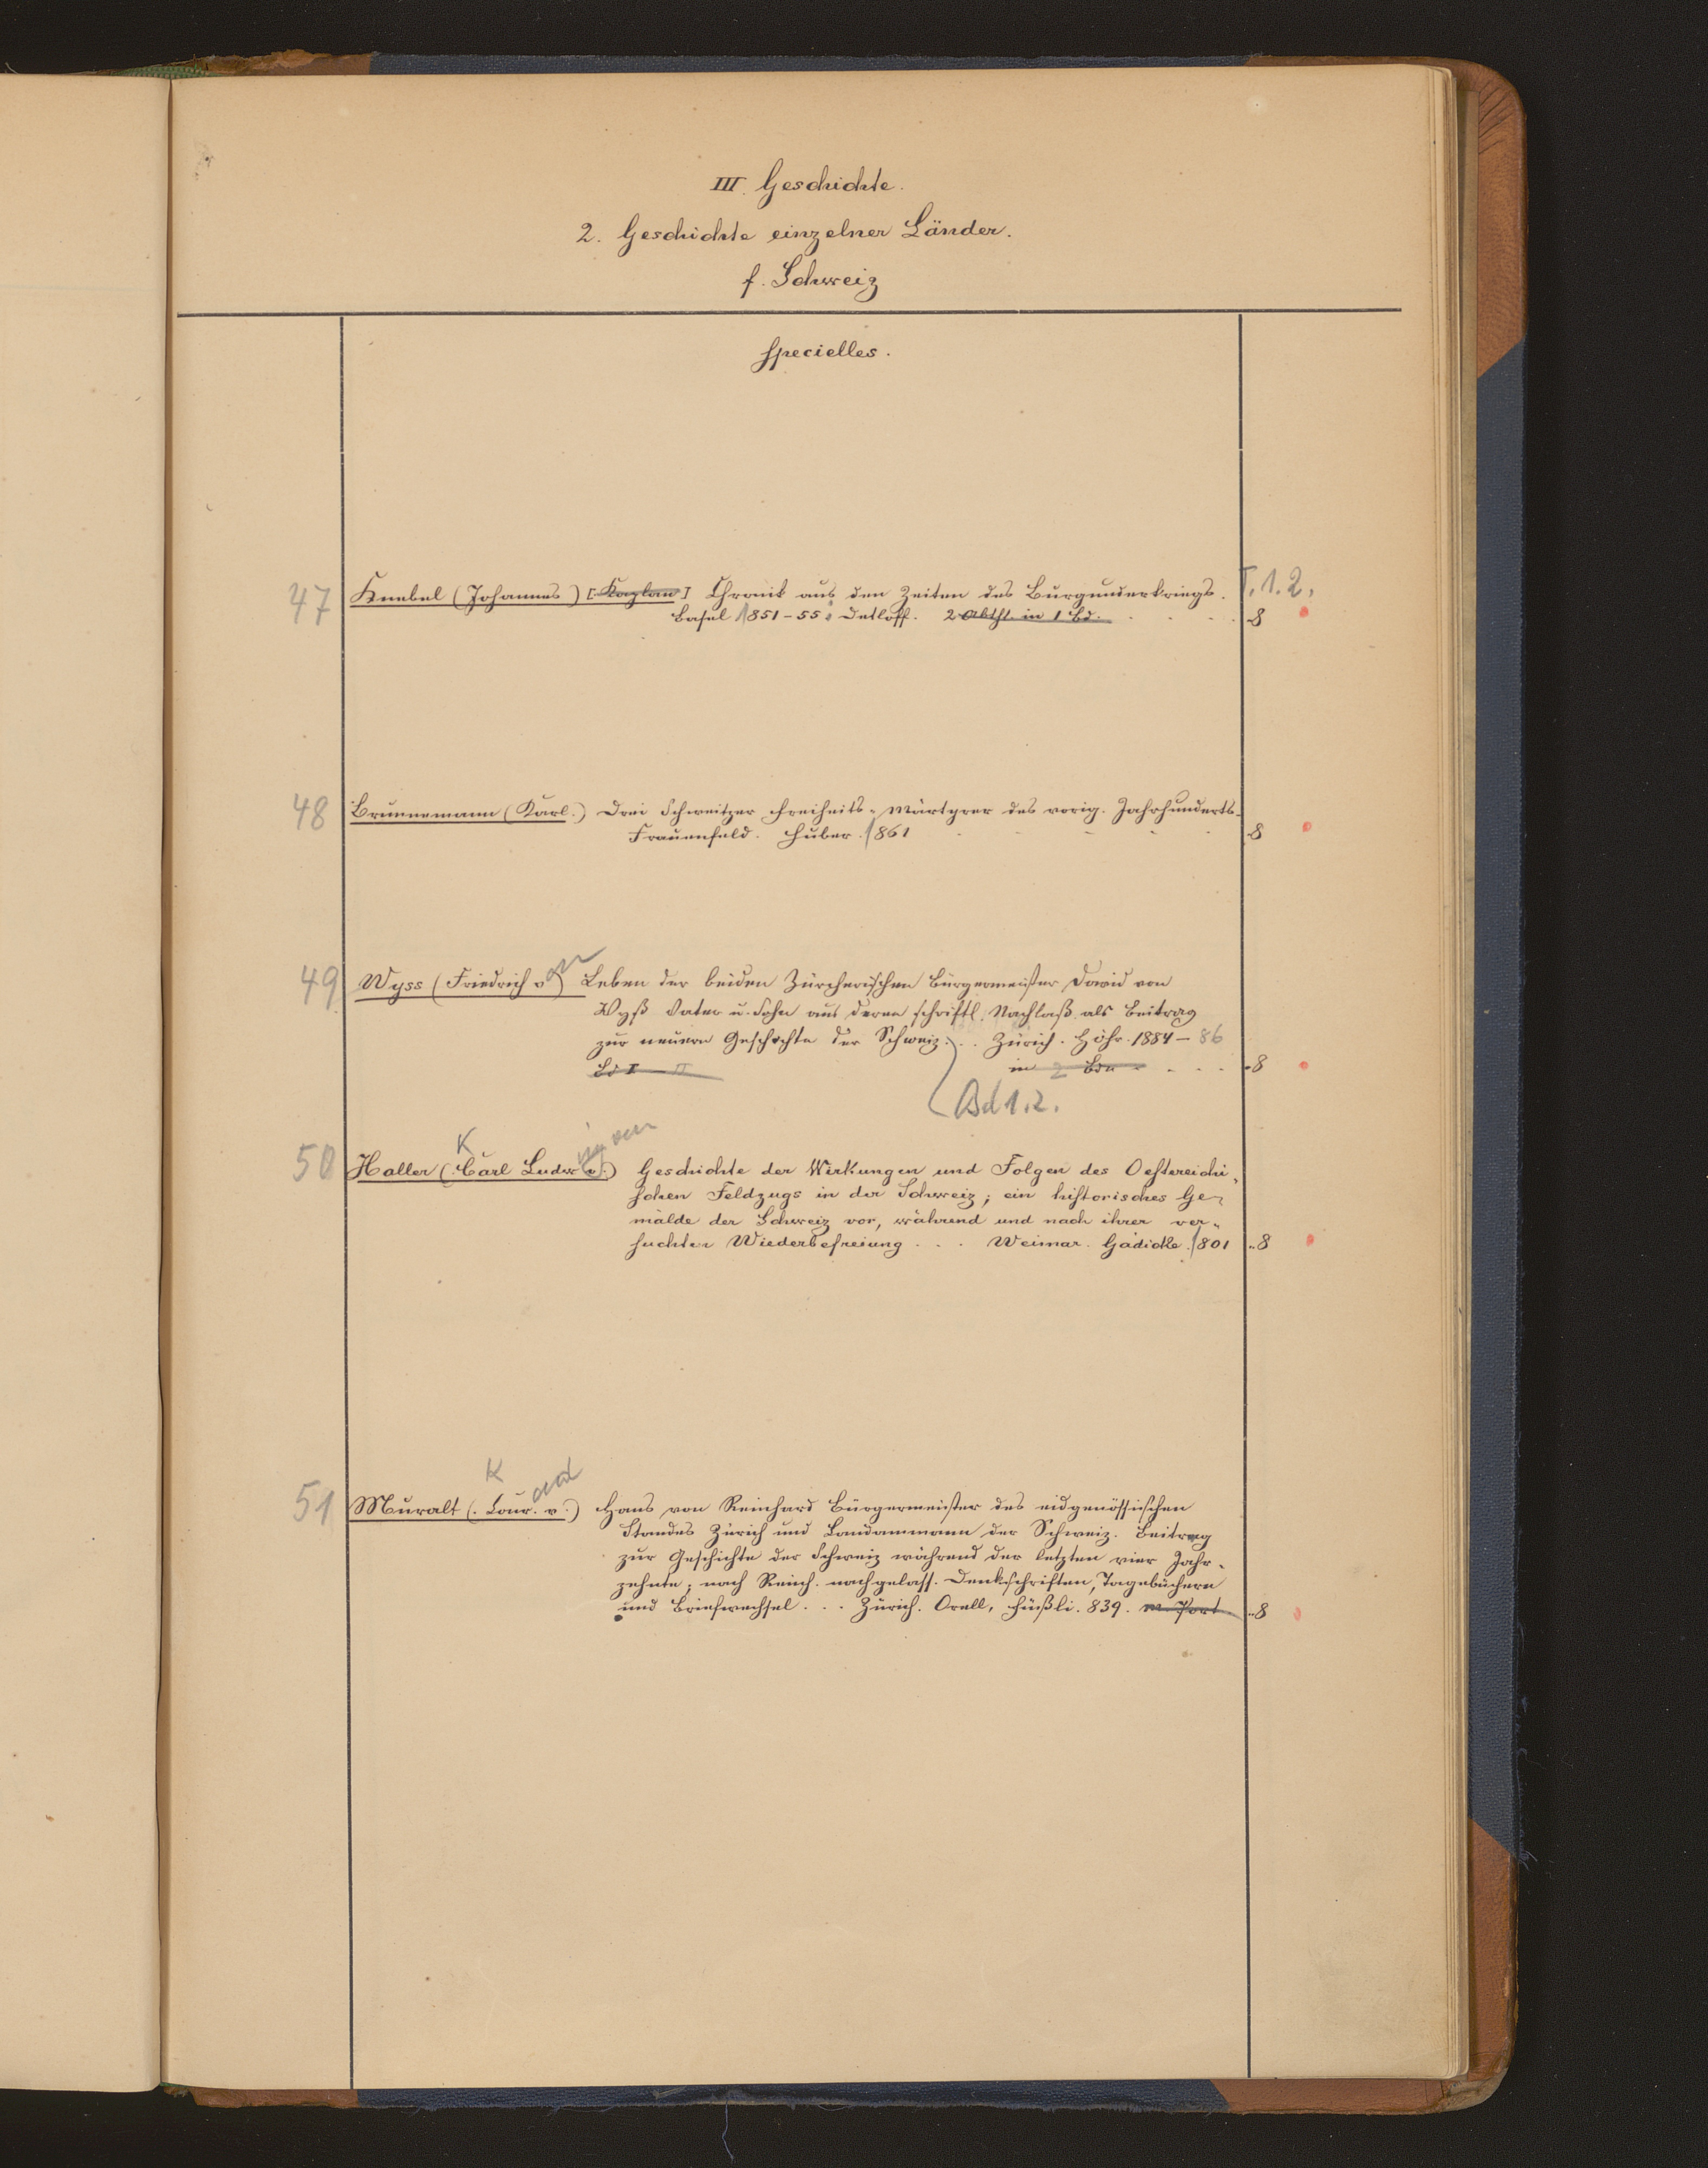 III. Geschichte.
2. Geschichte einzelner Länder.
f. Schweiz
Specielles.
47 Knebel (Johannes) [Kaplan] Chronik aus den Zeiten des Burgunderkriegs. T. 1.2.
Basel 1851-55. Detloff. 2 Abthl. in 1 Bd. . . . . 8
48 Brunnemann (Karl.) Drei Schweitzer Freiheits-Märtyrer des vorig. Jahrhunderts.
Frauenfeld. Huber. 1861 - - - - - 8
49 Wyss (Friedrich von) Leben der beiden Zürcherischen Bürgermeister David von
Wyß Vater u. Sohn aus deren schriftl. Nachlaß als Beitrag
zur neuern Geschichte der Schweiz. . . Zürich. Höhr. 1884-86
Bd I-II in 2 Bdn - . . . 8
Bd 1.2.
K ig von
50 Haller (Carl Ludw v.) Geschichte der Wirkungen und Folgen des Oestereichi-
schen Feldzugs in der Schweiz; ein historisches Ge-
mälde der Schweiz vor, während und nach ihrer ver-
suchten Wiederbefreiung . . . Weimar. Gädicke. 1801 8
K ad
51 Muralt (. Conr. v.) Hans von Reinhard Bürgermeister des eidgenössischen
Standes Zürich und Landammann der Schweiz. Beitrag
zur Geschichte der Schweiz während der letzten vier Jahr-
zehnte; nach Reinh. nachgelass. Denkschriften, Tagebüchern
und Briefwechsel . . . Zürich. Orell, Füßli. 839. m. Port. 8